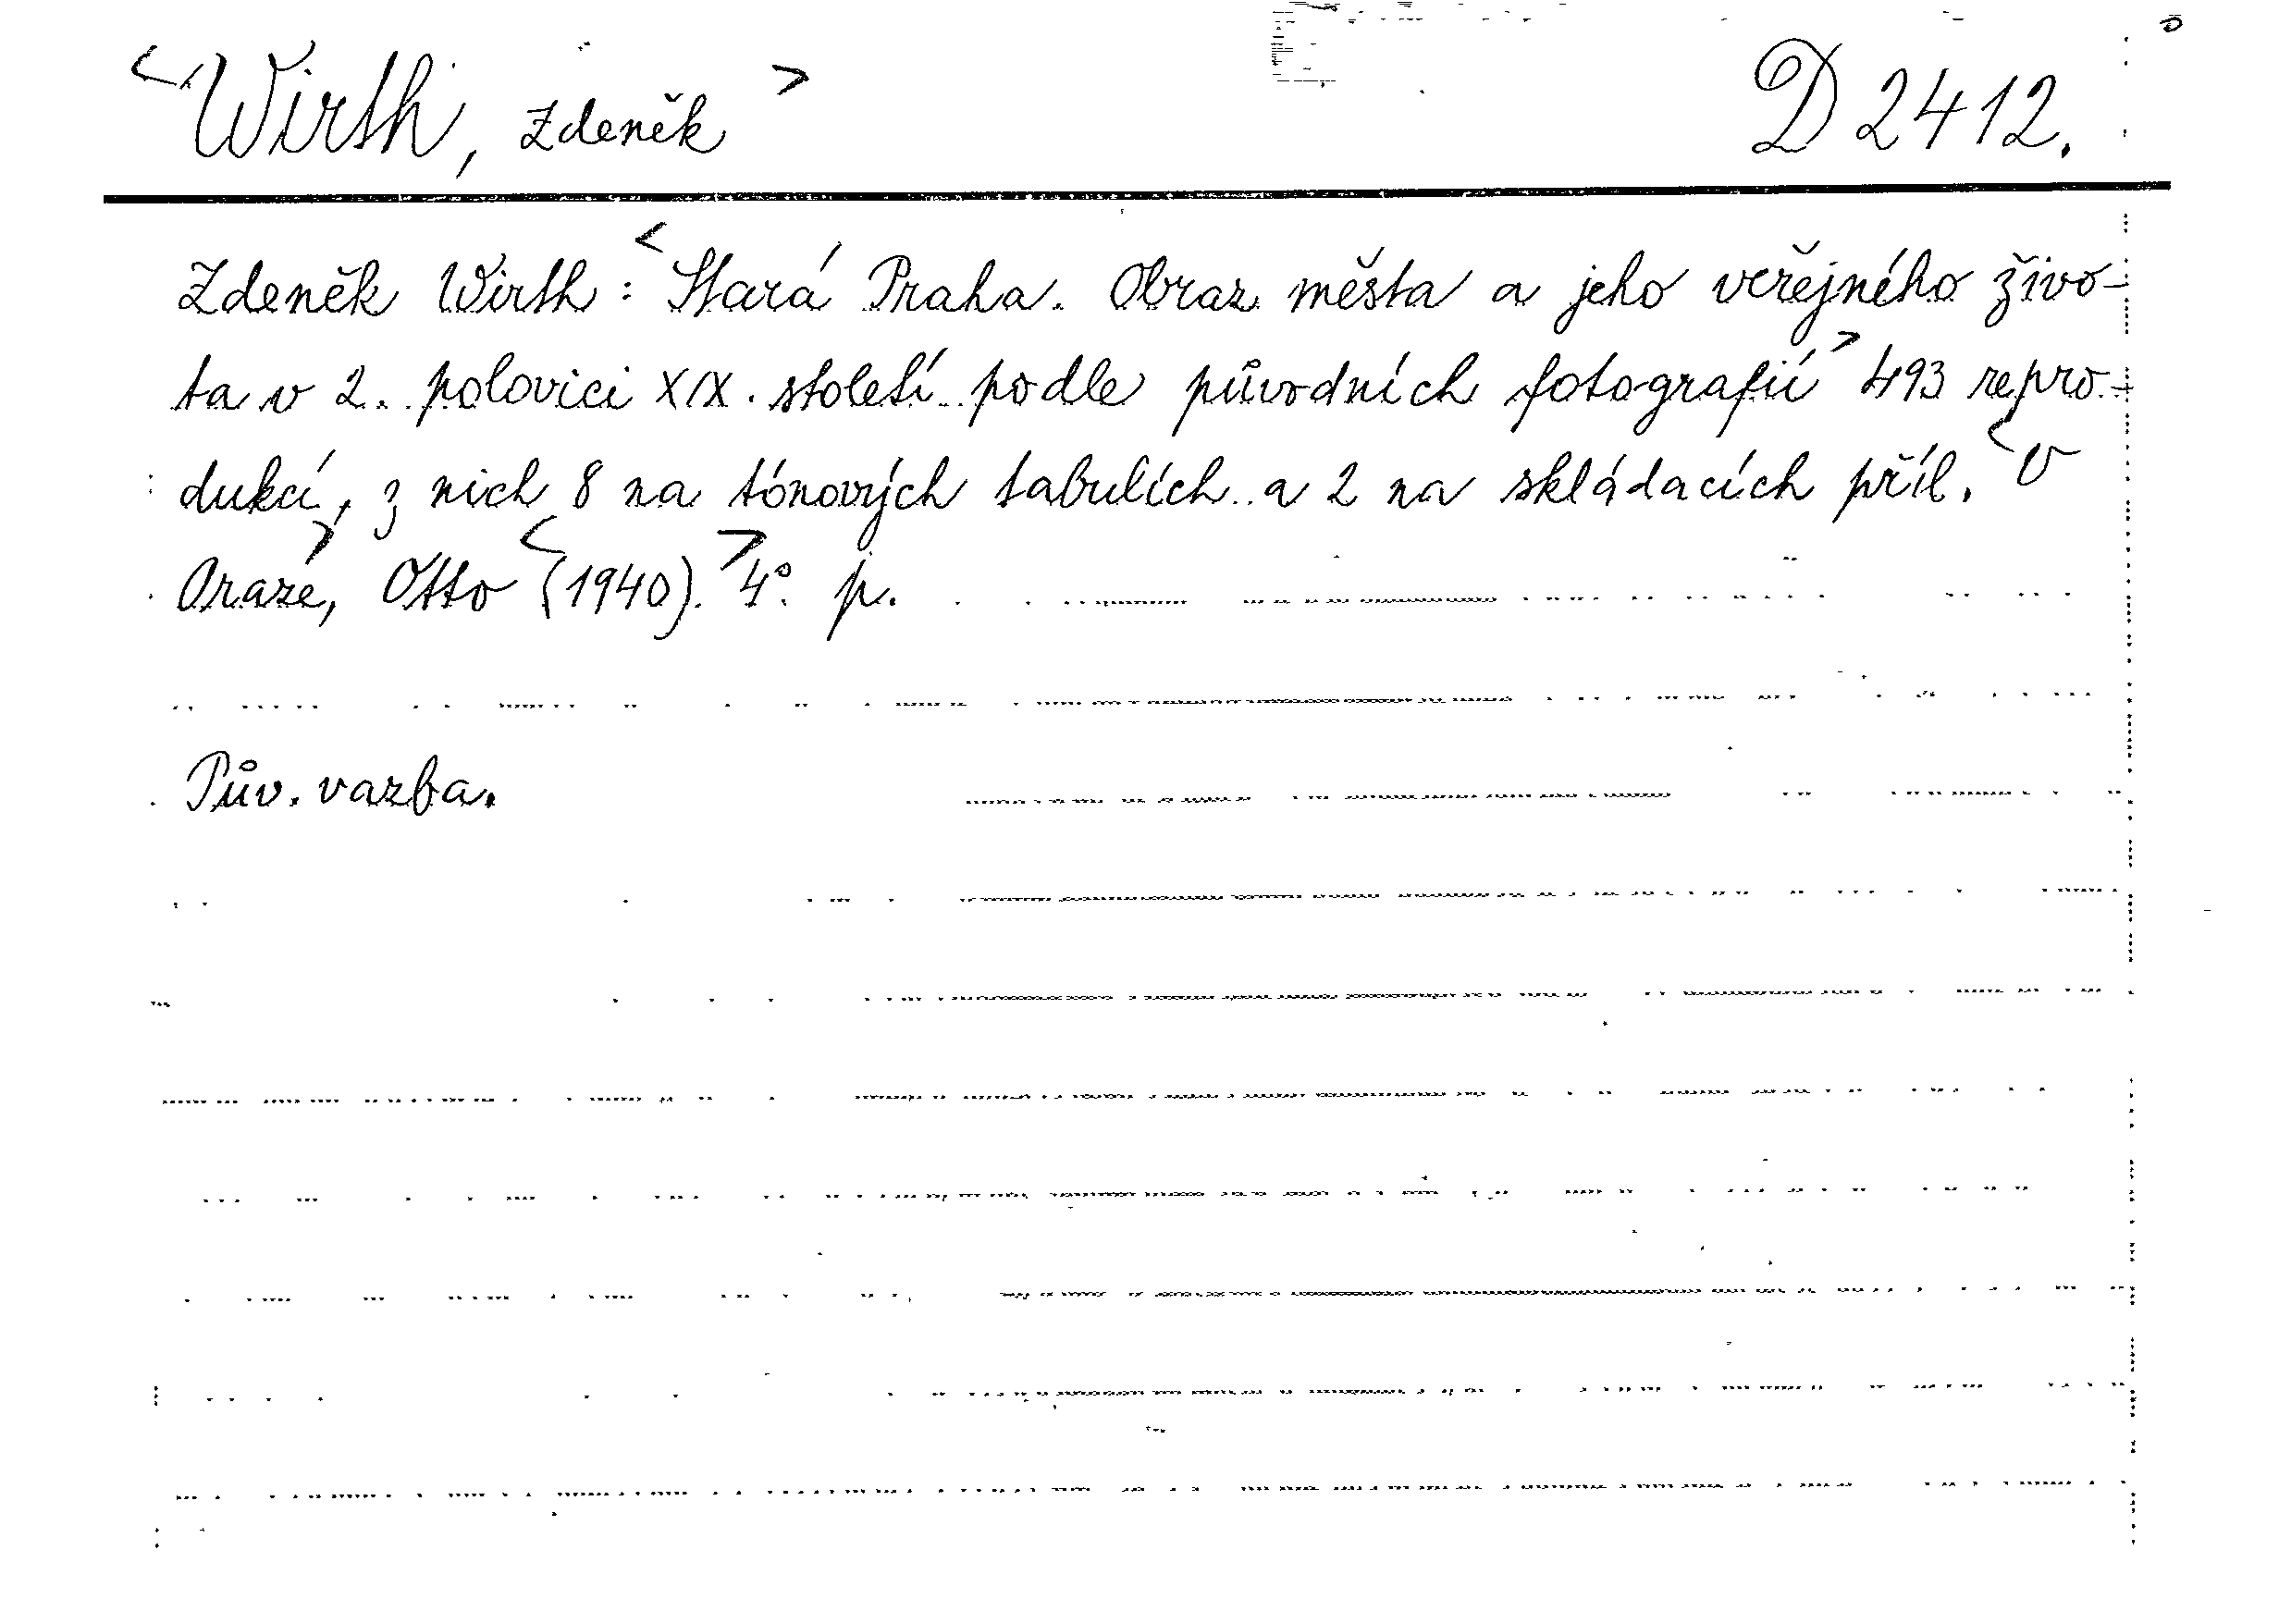 <Wirth, Zdeněk> D 2412.
Zdeněk Wirth: <Stará Praha. Obraz města a jeho veřejného živo-
ta v 2. polovici XIX. století podle původních fotografií> 493 repro-
dukcí, z nich 8 na tónových tabulích a 2 na skládacích příl. <V
Praze>, Otto <(1940).> 4° p.
Pův. vazba.